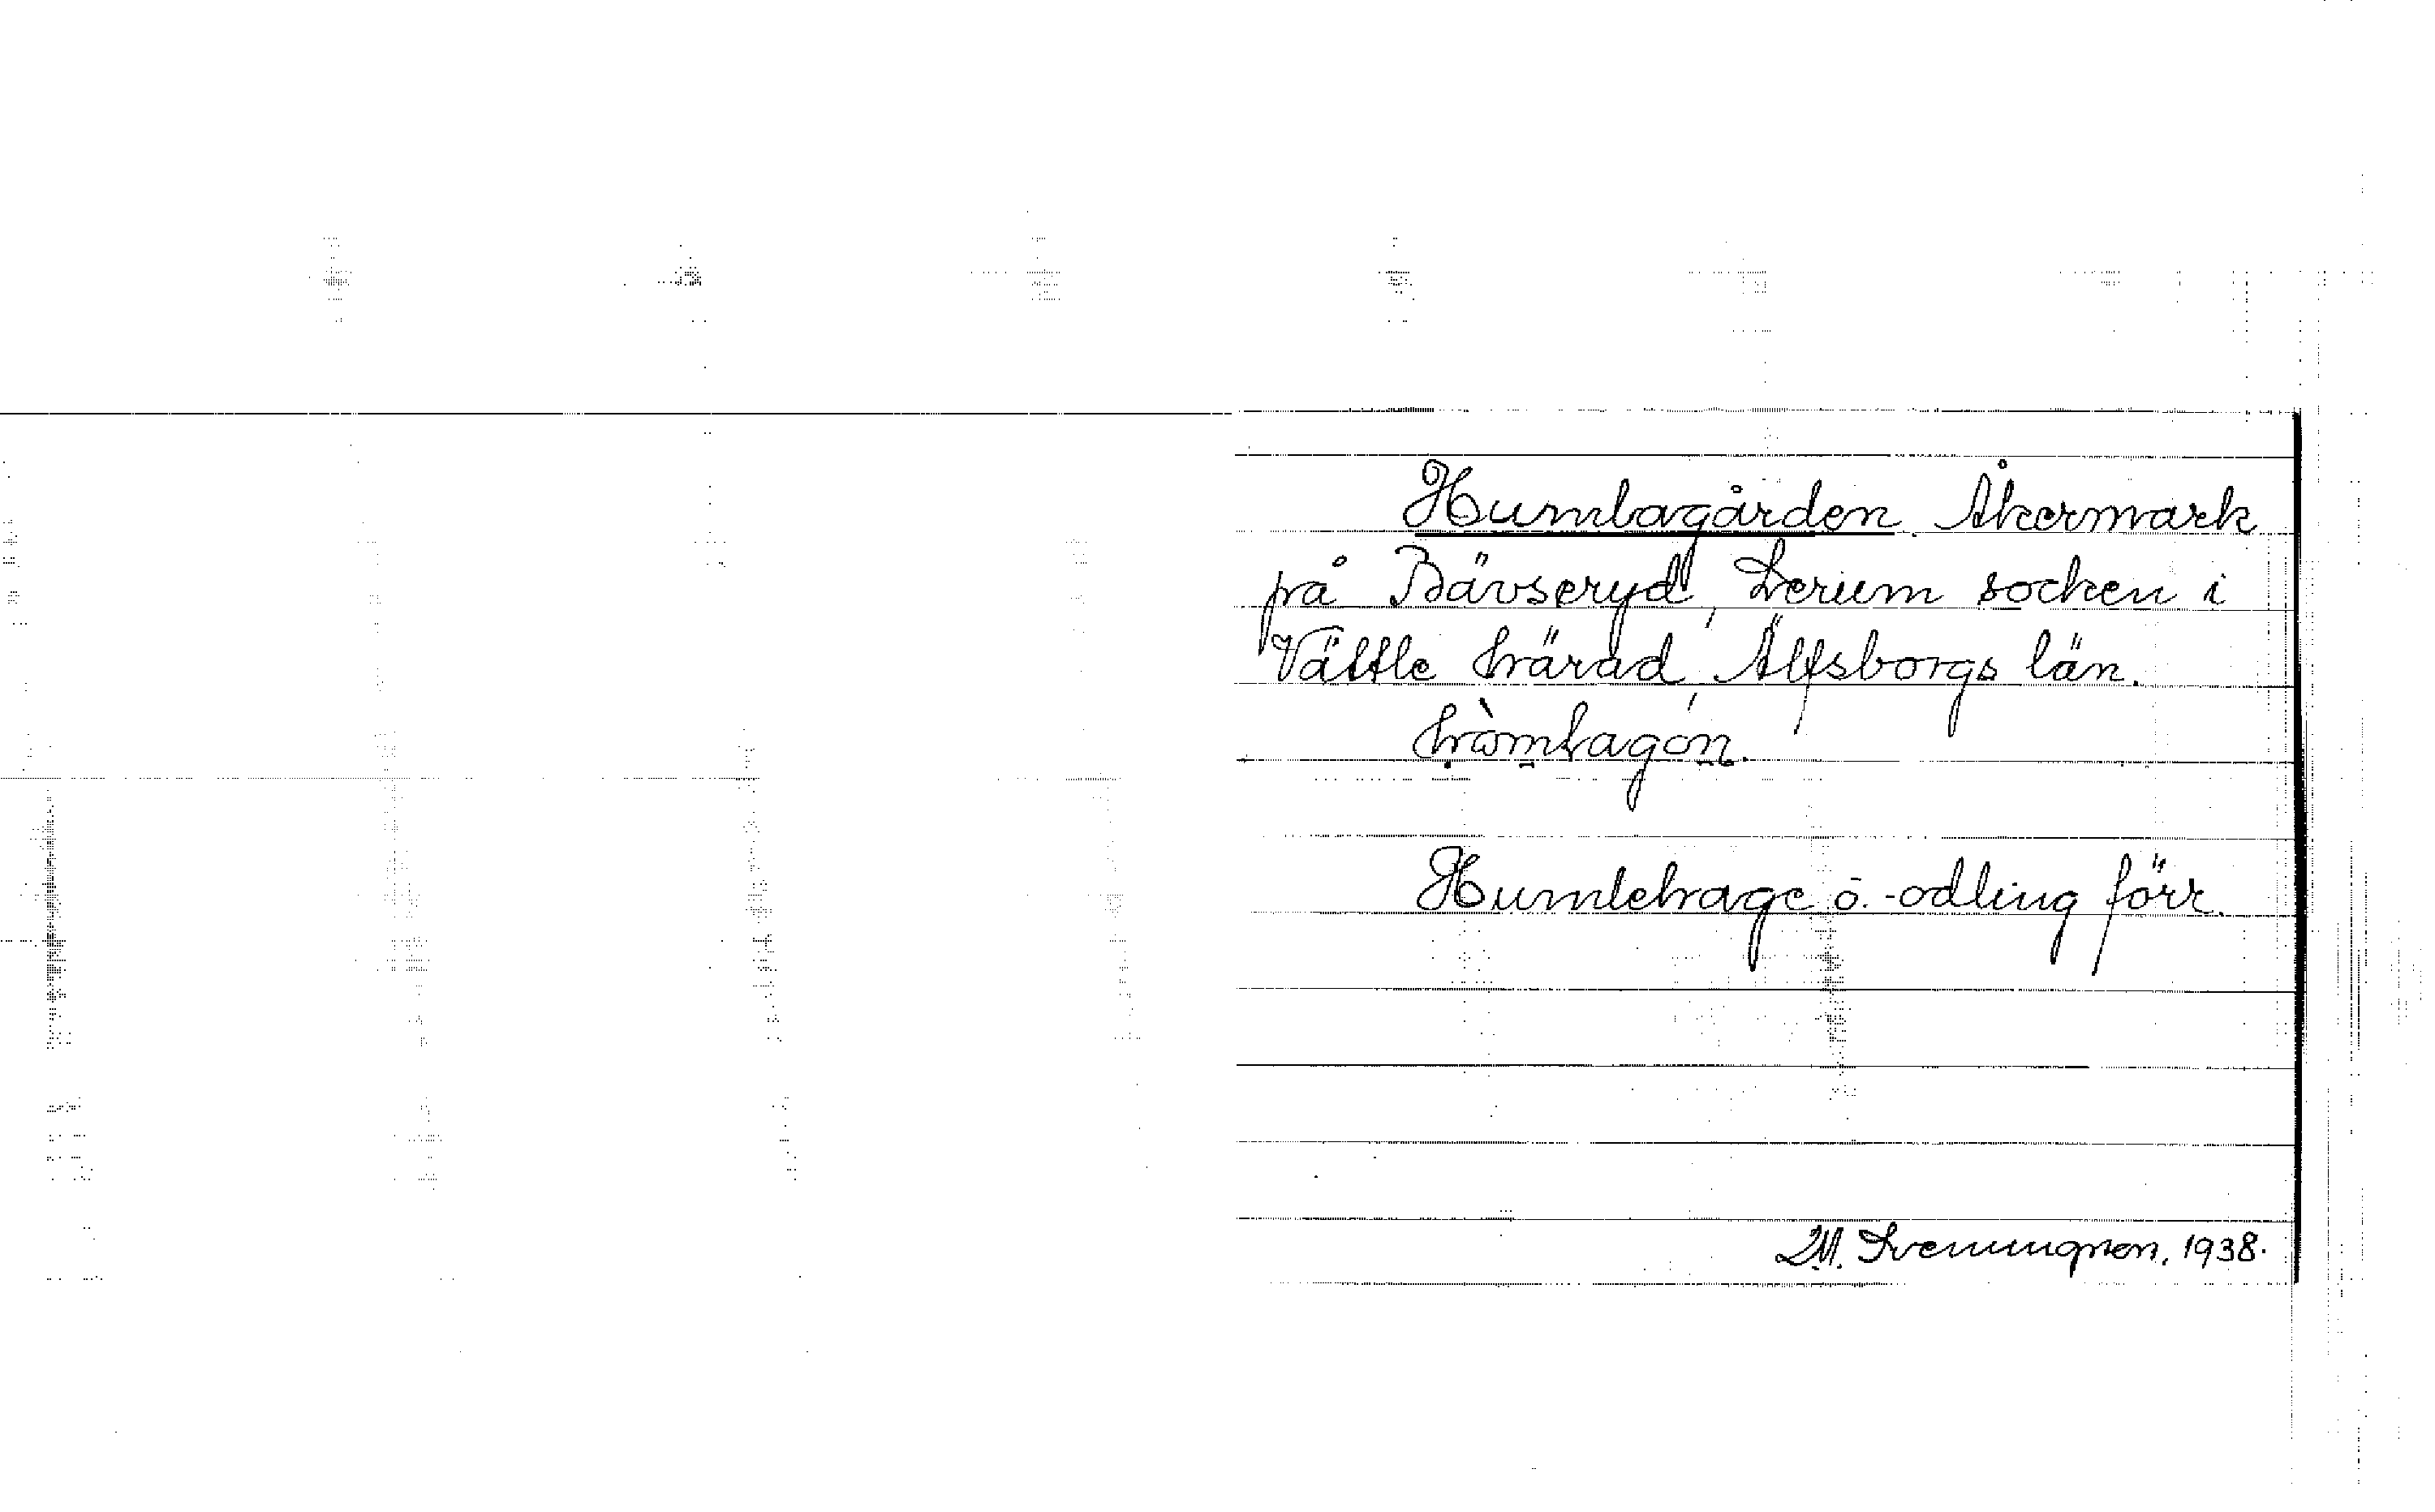 Humlagården. Åkermark
på Bävseryd, Lerum socken i
Vättle härad, Älfsborgs län.
hòmlagón.
Humlehage o. -odling förr.
M. Svenungson, 1938.